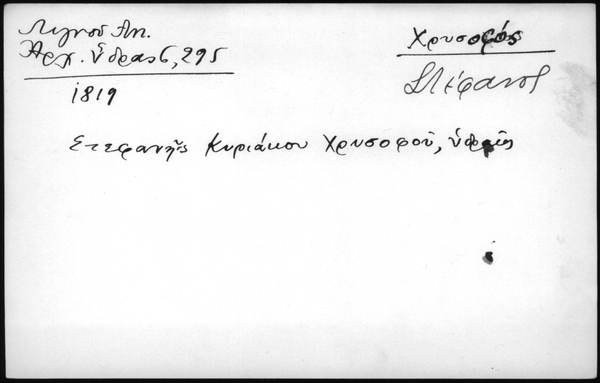 Λιγνοῦ Ἀπ.
Ἀρχ. Ὕδρας 6, 295
1819
Χρυσοφός
Στέφανος
Στεφανῆς Κυριάκου Χρυσοφοῦ, ὑδραῖος